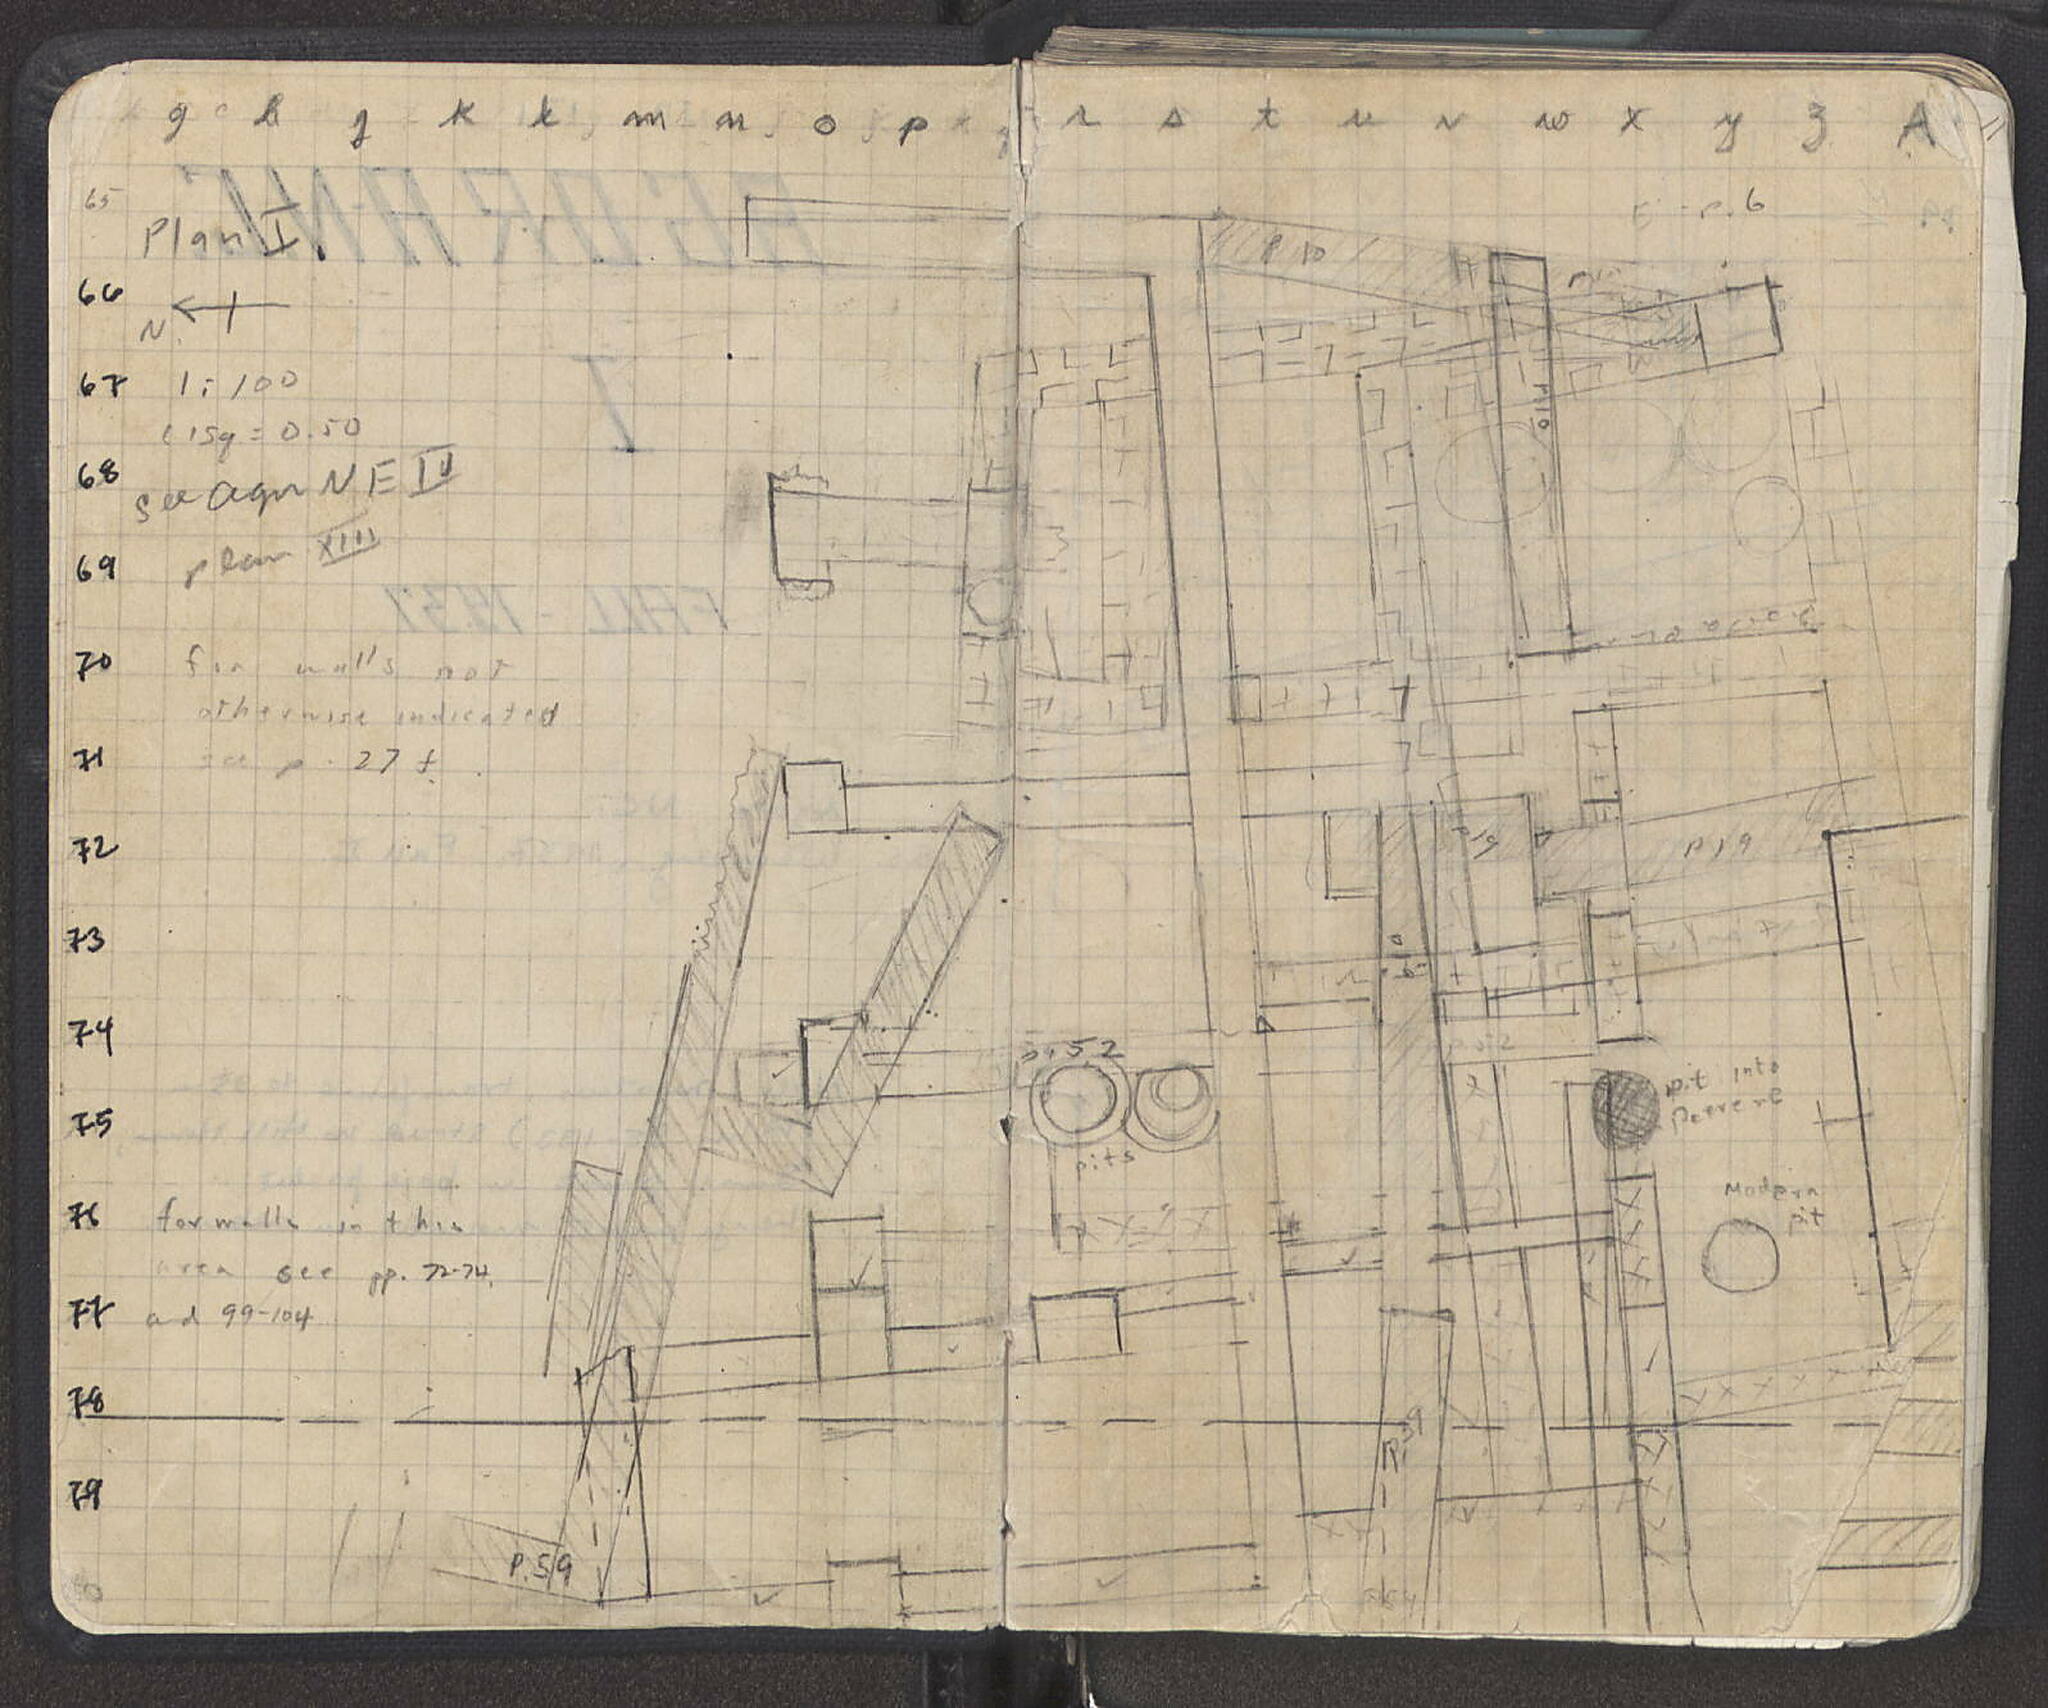 g h j k l m n o p q r s t u v w x y z A
65
Plan I.
E - p. 6
P 10
66
N.
67
1:100
(1 Sq = 0.50
P 10
68
See Agora NE IV
69
plan XIII
70
for walls not
otherwise indicated
71
see p. 27 f.
72
P 19
P 19
73
74
p. 52
p. 52
pit into
75
pits
Modern
pit
76
for walls in this
area see pp. 72-74,
77
and 99-104
78
P. 59
79
P. 59
80